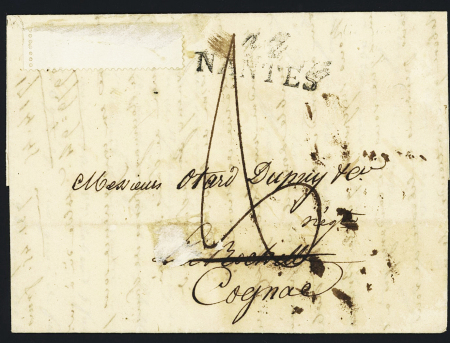 42
NANTES
Messieurs Otard Dupuy & Co
négts
La Rochelle
Cognac